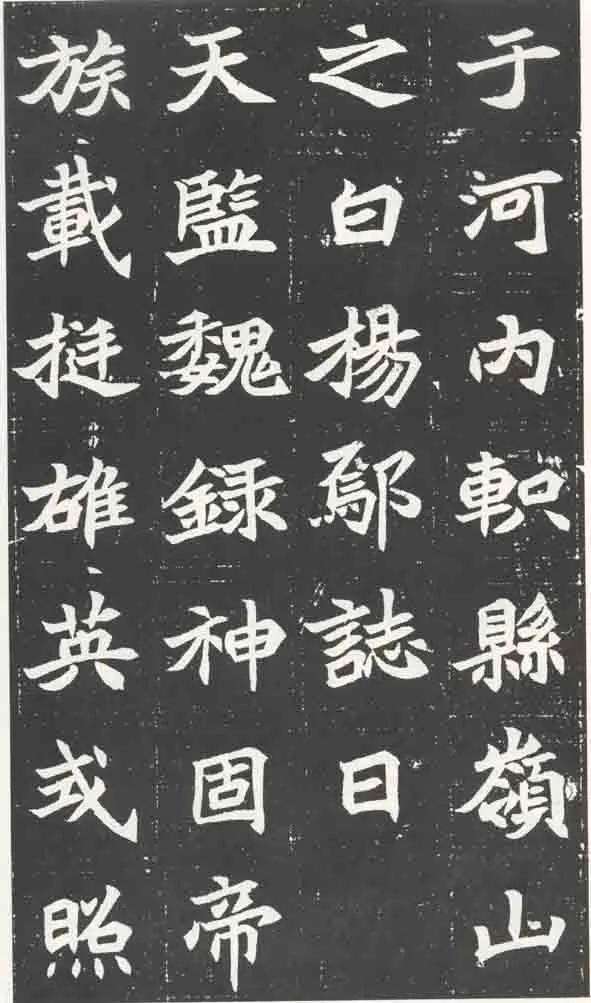 于河內軹縣嶺山
之白楊鄢誌曰
天監魏錄神固帝
族載挺雄英或照